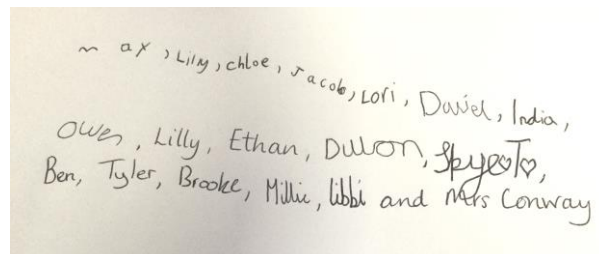 Max, Lilly, chloe, Jacob, Lori, Daniel, India,
Owen, Lilly, Ethan,
Ben, Tyler, Brooke, Millie, libbi and Mrs Conway